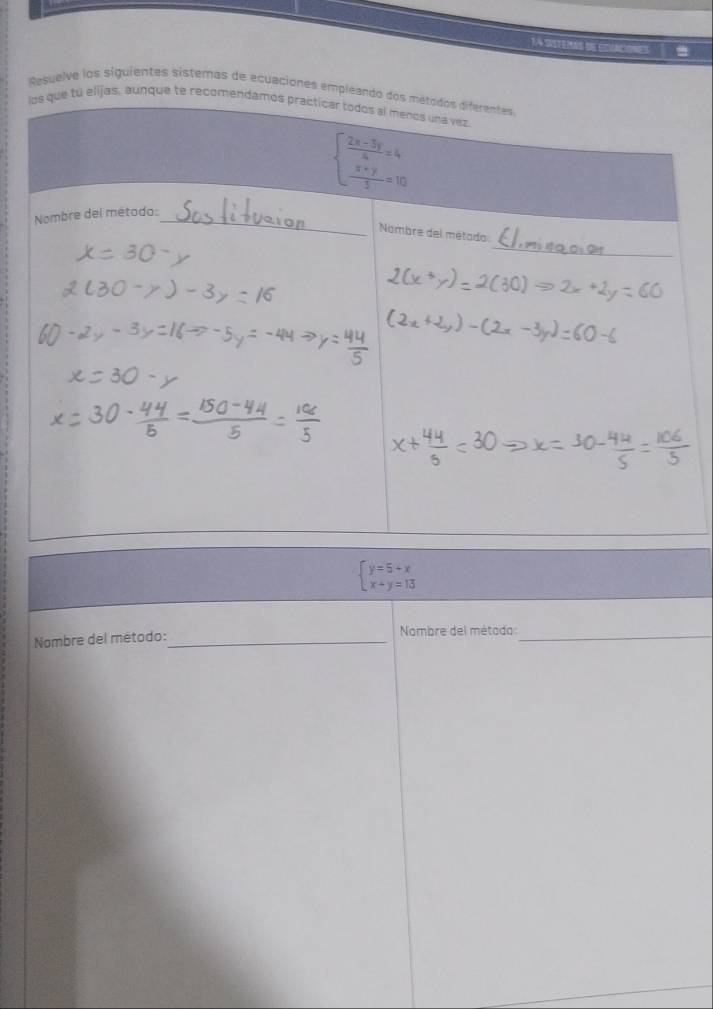 1.4 SISTEMAS DE ECUACIONES
Resuelve los siguientes sistemas de ecuaciones empleando dos métodos diferentes,
los que tú elijas, aunque te recomendamos practicar todos al menos una vez.
2x - 3y / 4 = 4
x + y / 3 = 10
Nombre del método: Sustitucion
Nombre del método: Eliminacion
x = 30 - y
2(30 - y) - 3y = 16
60 - 2y - 3y = 16 → -5y = -44 → y = 44/5
x = 30 - y
x = 30 - 44/5 = 150-44/5 = 106/5
2(x + y) = 2(30) ⇒ 2x + 2y = 60
(2x + 2y) - (2x - 3y) = 60 - 6
x + 44/5 = 30 ⇒ x = 30 - 44/5 = 106/5
y = 5 + x
x + y = 13
Nombre del método:
Nombre del método: